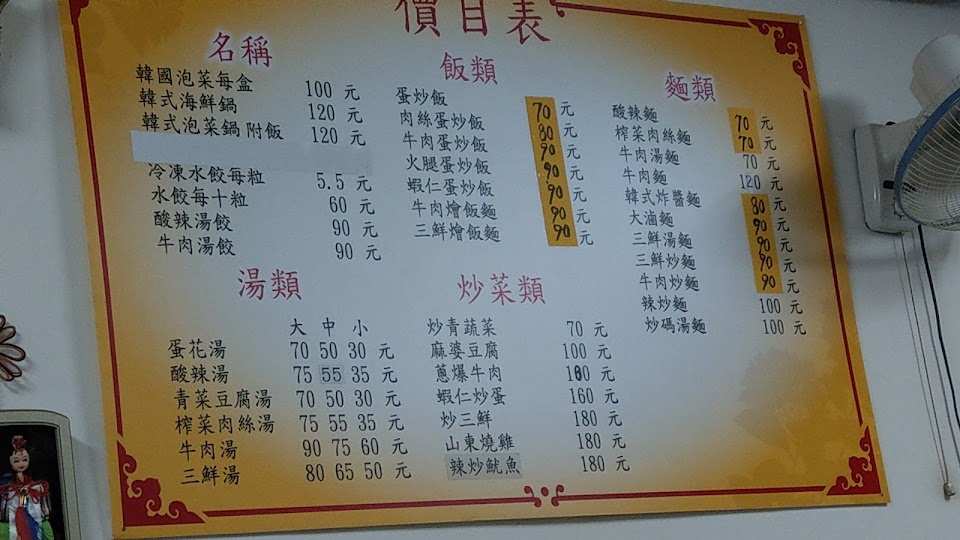 價目表
名稱
韓國泡菜每盒 100 元
韓式海鮮鍋 120 元
韓式泡菜鍋 附飯 120 元
冷凍水餃每粒 5.5 元
水餃每十粒 60 元
酸辣湯餃 90 元
牛肉湯餃 90 元
飯類
蛋炒飯 70 元
肉絲蛋炒飯 80 元
牛肉蛋炒飯 90 元
火腿蛋炒飯 90 元
蝦仁蛋炒飯 90 元
牛肉燴飯麵 90 元
三鮮燴飯麵 90 元
麵類
酸辣麵 70 元
榨菜肉絲麵 70 元
牛肉湯麵 70 元
牛肉麵 120 元
韓式炸醬麵 80 元
大滷麵 90 元
三鮮湯麵 90 元
三鮮炒麵 90 元
牛肉炒麵 90 元
辣炒麵 100 元
炒碼湯麵 100 元
湯類
大 中 小
蛋花湯 70 50 30 元
酸辣湯 75 55 35 元
青菜豆腐湯 70 50 30 元
榨菜肉絲湯 75 55 35 元
牛肉湯 90 75 60 元
三鮮湯 80 65 50 元
炒菜類
炒青蔬菜 70 元
麻婆豆腐 100 元
蔥爆牛肉 180 元
蝦仁炒蛋 160 元
炒三鮮 180 元
山東燒雞 180 元
辣炒魷魚 180 元